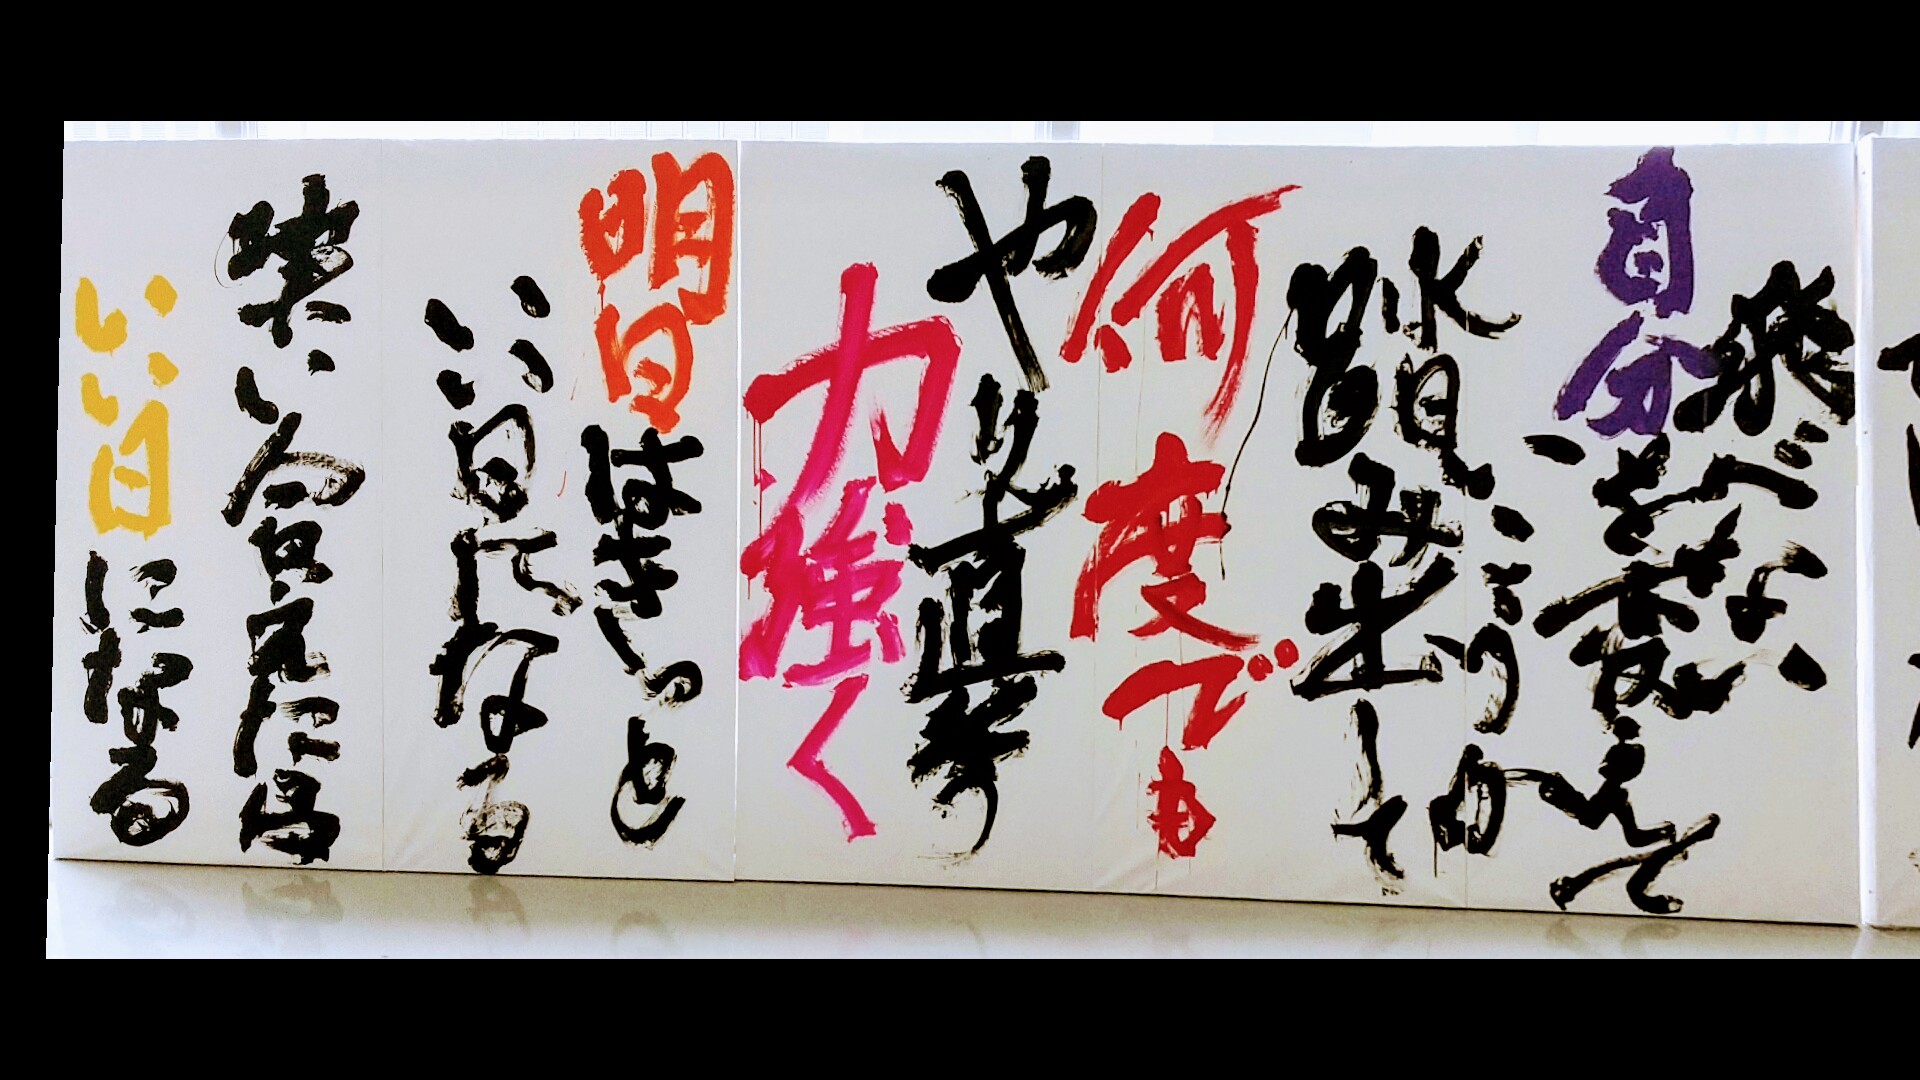 飛べない
自分を変えて
いこうか
踏み出して
何度でも
やり直そう
力強く
明日はきっと
いい日になる
笑い合えたら
いい日になる